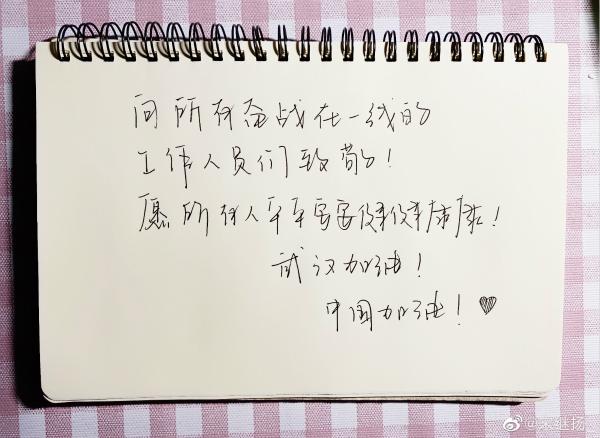 向所有奋战在一线的
工作人员们致敬!
愿所有人平平安安健健康康!
武汉加油!
中国加油!♥
@宋继扬